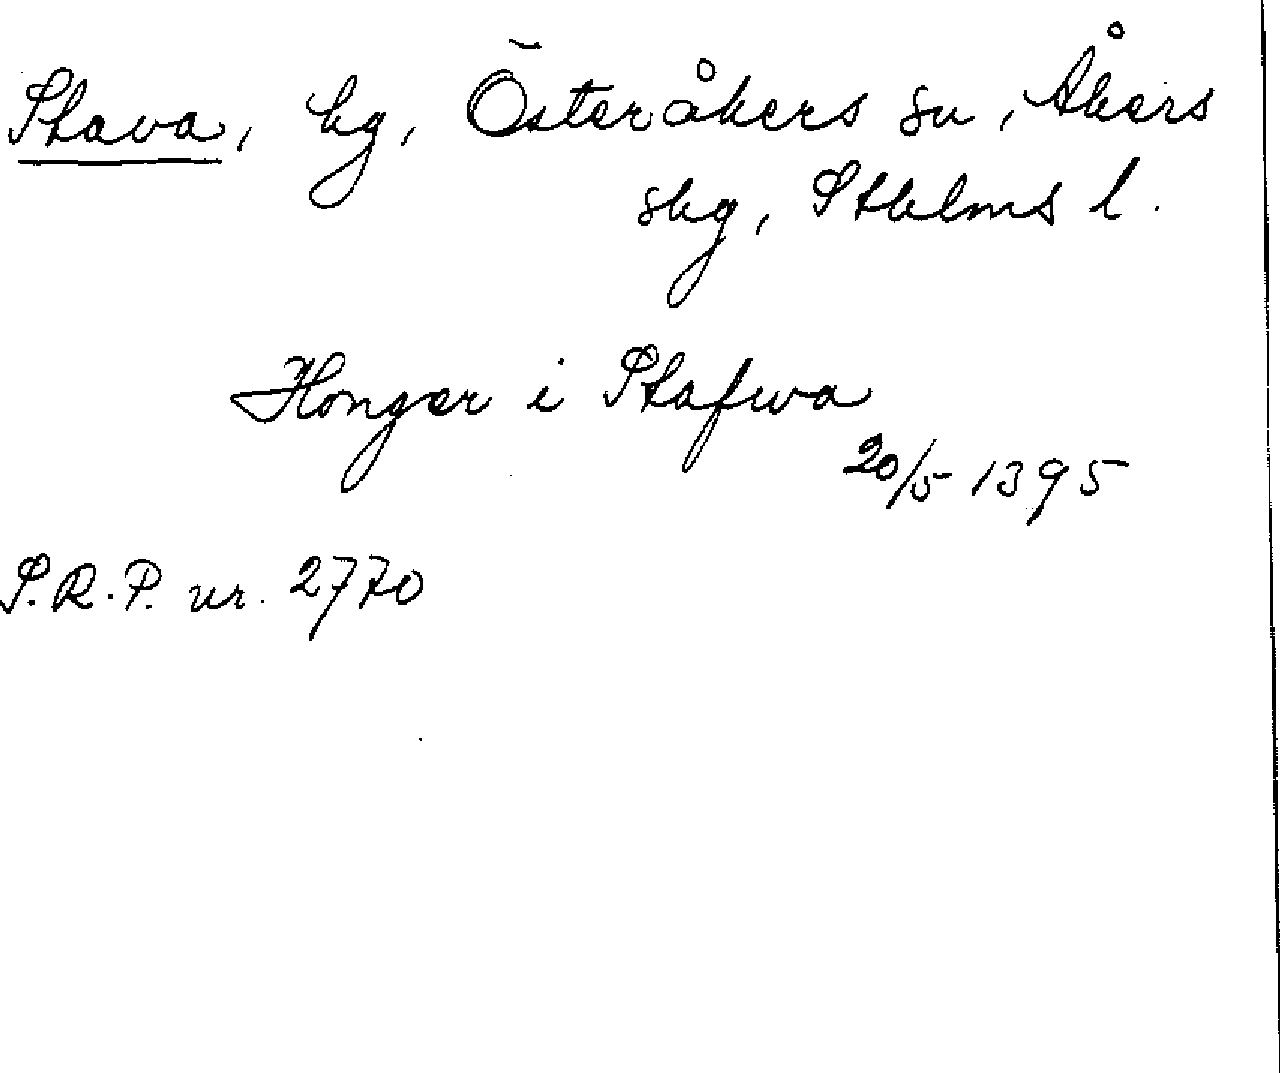 Stava, hg, Österåkers sn, Åkers
skg, Sthlms l.
Hongær i Stafwa
20/5 1395
S.R.P. nr. 2770